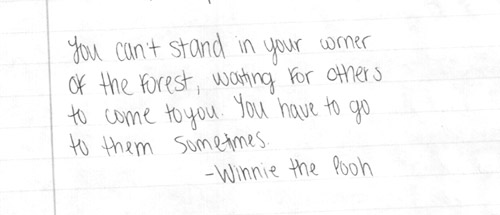 You can't stand in your corner
of the forest, waiting for others
to come to you. You have to go
to them sometimes.
-Winnie the Pooh